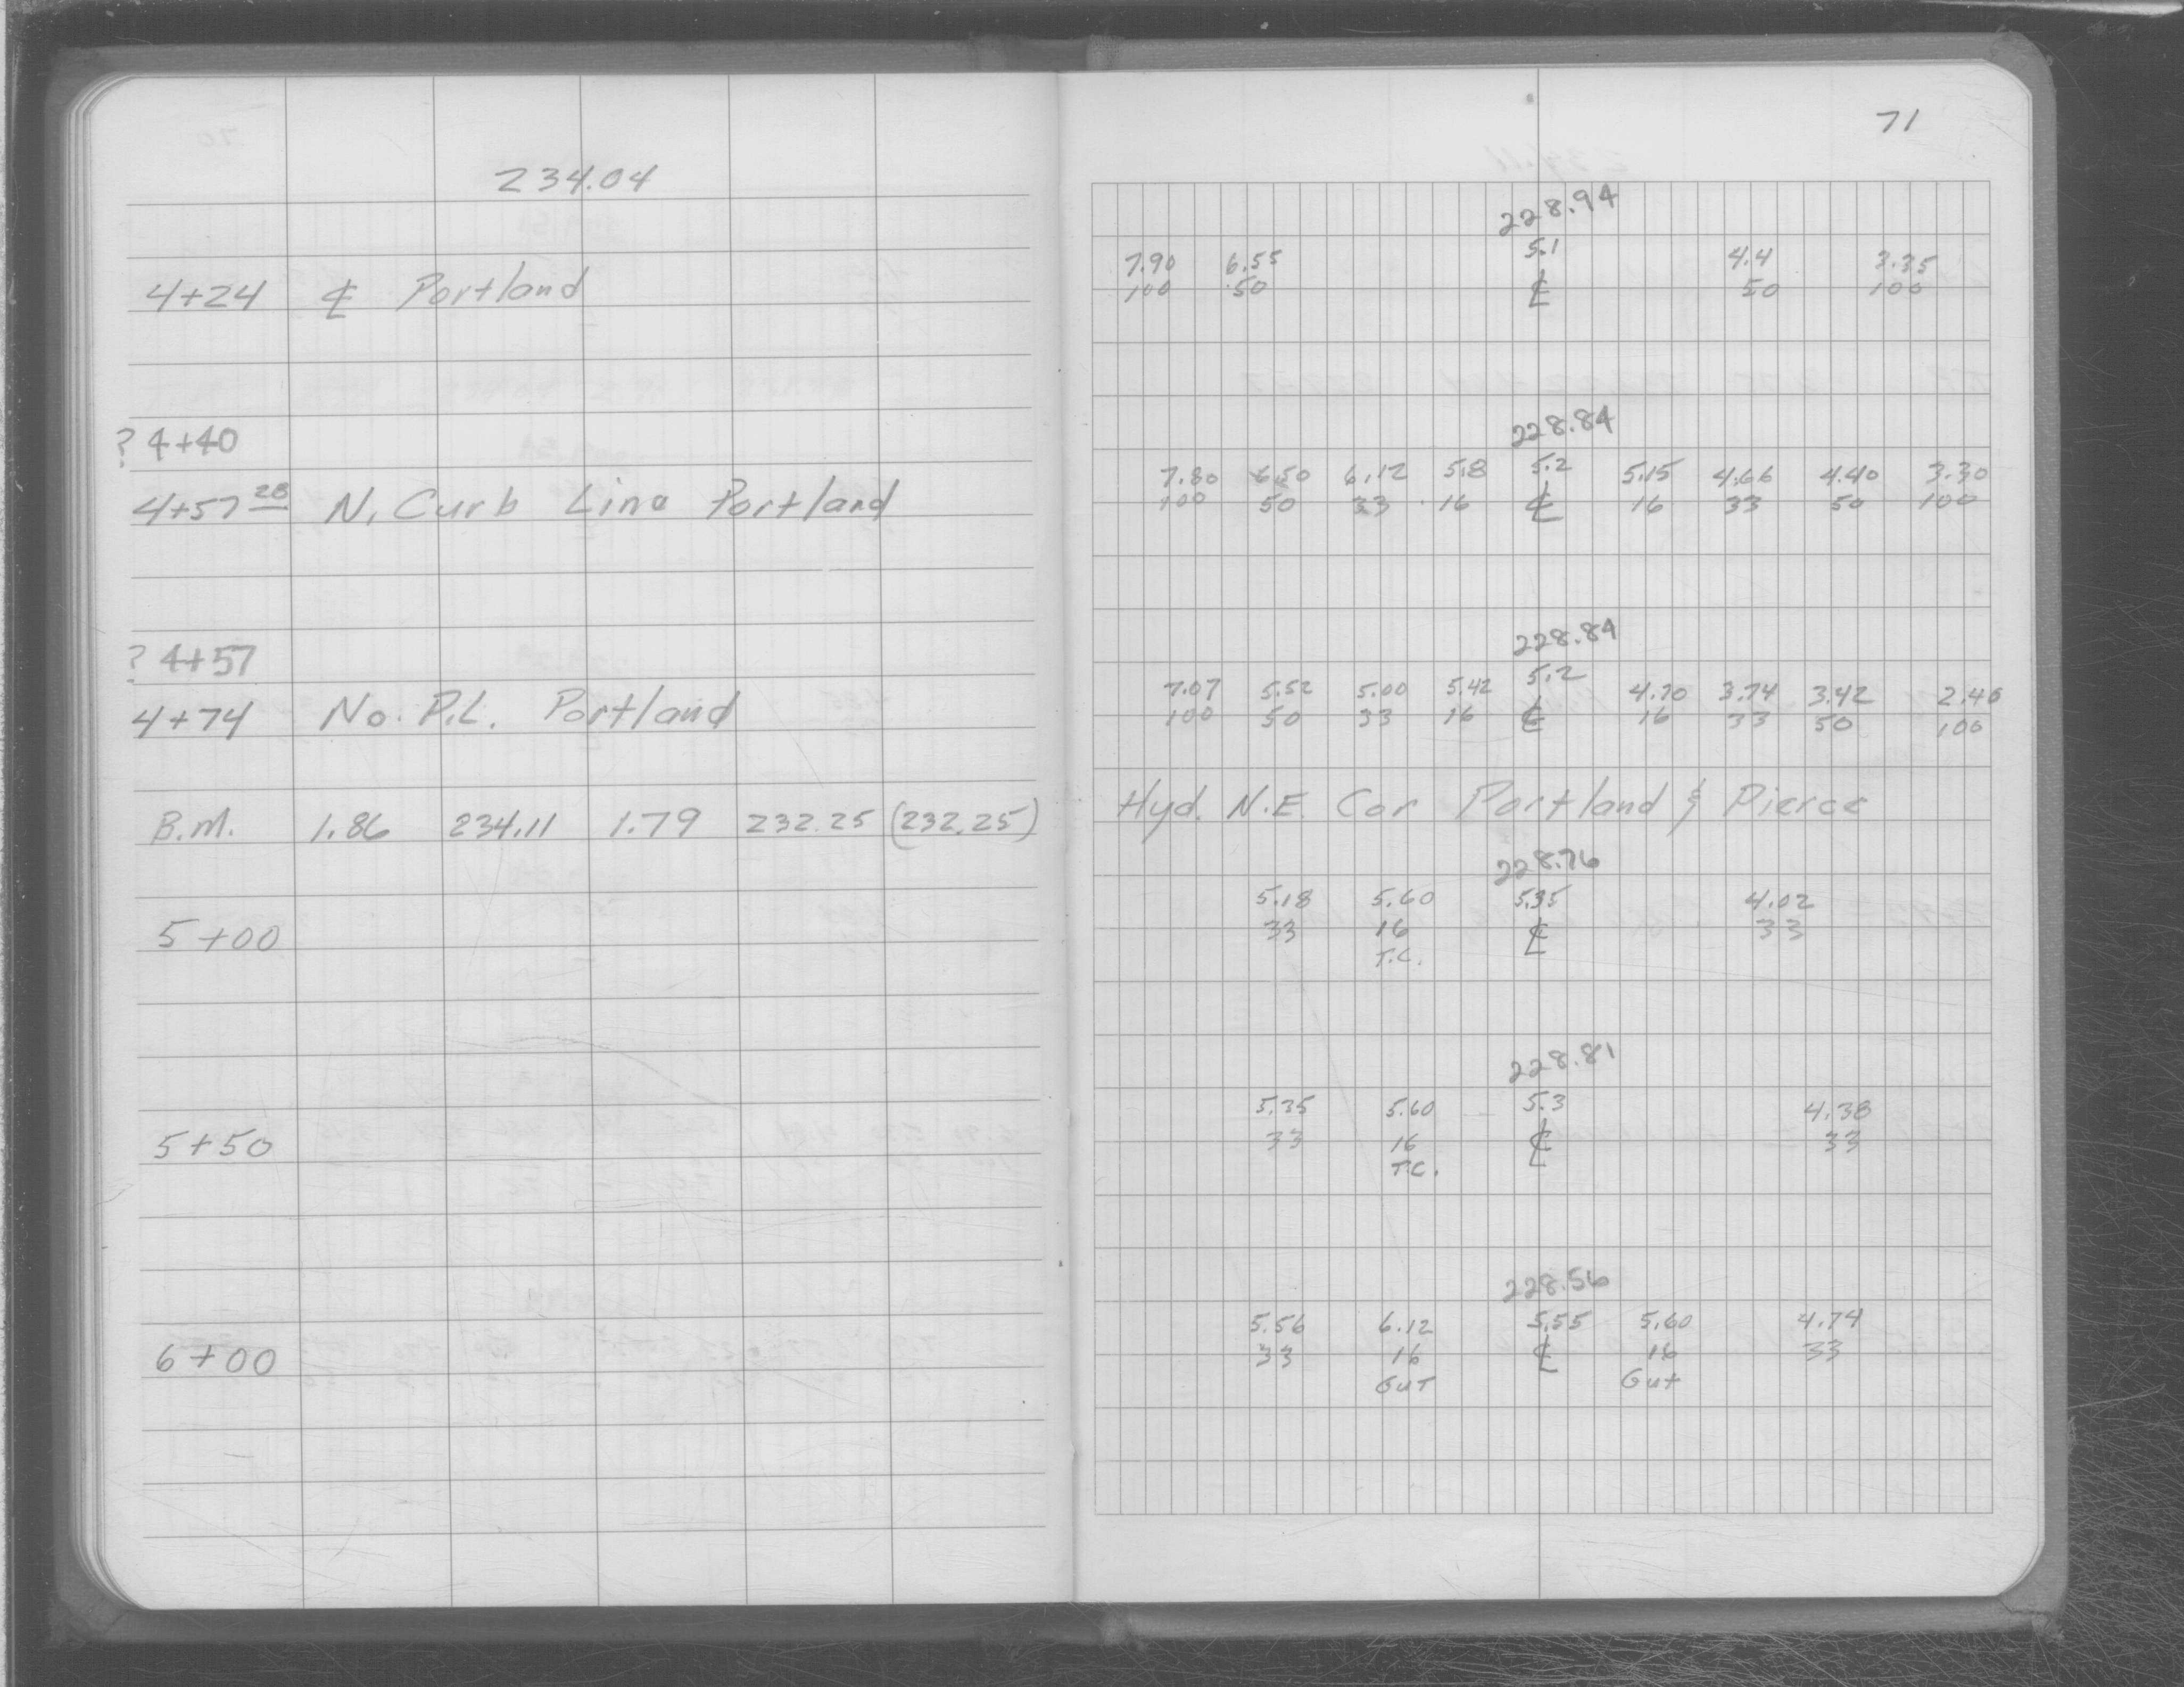 71
234.04
228.94
7.90 6.55 5.1 4.4 3.35
4+24 ℄ Portland 100 50 ℄ 50 100
? 4+40 228.84
7.80 6.50 6.12 5.8 5.2 5.15 4.66 4.40 3.30
4+57 28 N. Curb Line Portland 100 50 33 16 ℄ 16 33 50 100
? 4+57 228.84
7.07 5.52 5.00 5.42 5.2 4.70 3.74 3.42 2.46
4+74 No. P.L. Portland 100 50 33 16 ℄ 16 33 50 100
B.M. 1.86 234.11 1.79 232.25 (232.25) Hyd. N.E. Cor Portland & Pierce
228.76
5.18 5.60 5.35 4.02
5+00 33 16 ℄ 33
T.C.
228.81
5.35 5.60 5.3 4.38
5+50 33 16 ℄ 33
T.C.
228.56
5.56 6.12 5.55 5.60 4.74
6+00 33 16 ℄ 16 33
GUT Gut